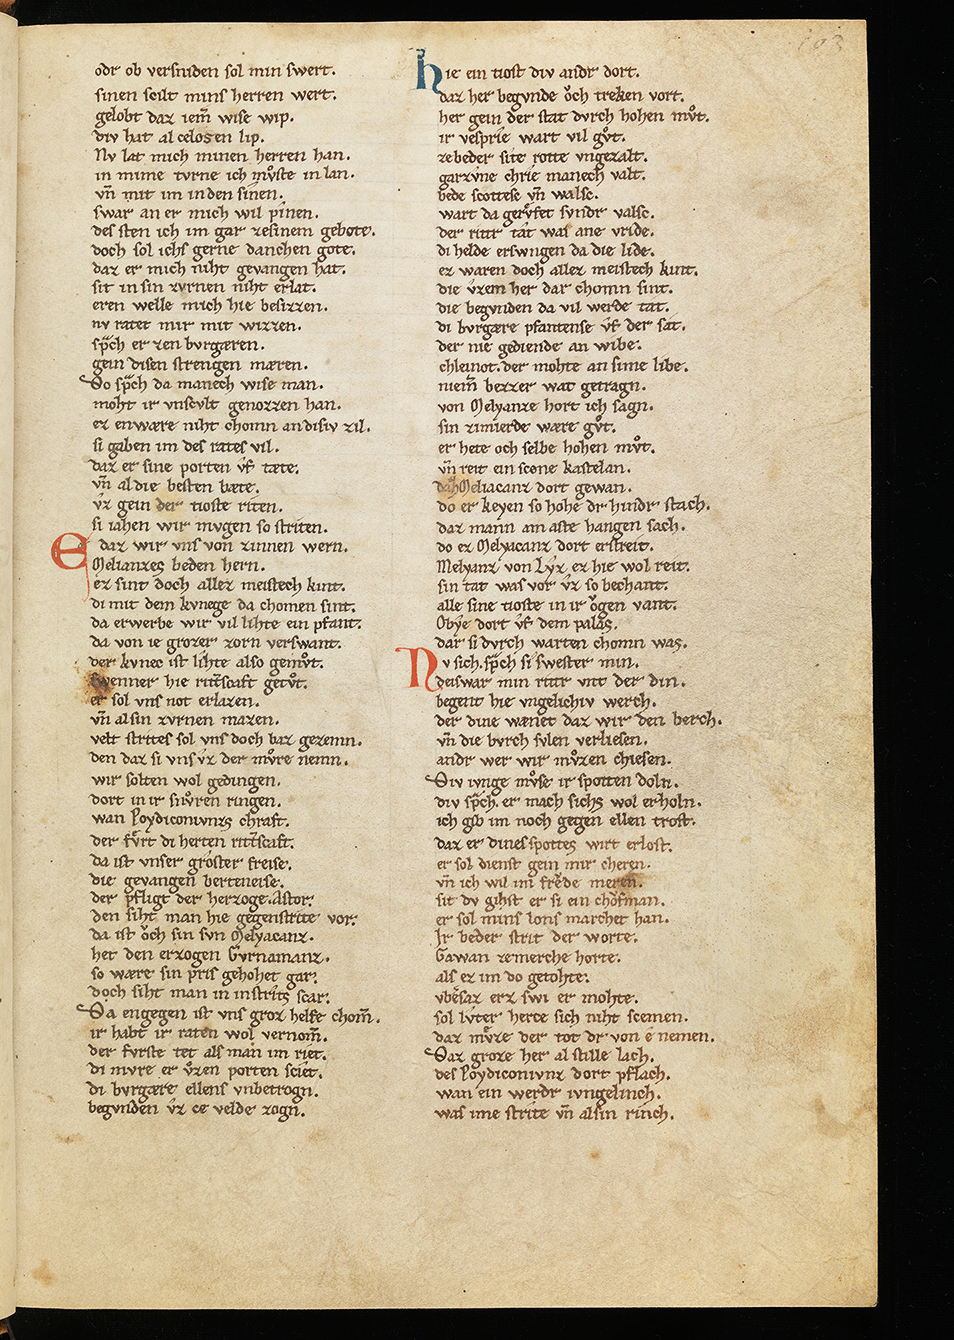 103
odr ob versniden sol min swert.
sinen seilt mins herren wert.
gelobt daz iem̄ wise wip.
div hat al celosen lip.
Nv lat mich minen herren han.
in mime tvrne ich mv̊ste in lan.
vn̄ mit im in den sinen.
swar an er mich wil pinen.
des sten ich im gar zesinem gebote.
doch sol ichs gerne danchen gote.
daz er mich niht gevangen hat.
sit in sin zvrnen niht erlat.
eren welle mich hie besizzen.
nv ratet mir mit wizzen.
sp̄ch er zen bvrgæren.
gein disen strengen mæren.
So sp̄ch da manech wise man.
moht ir vnscvlt genozzen han.
ez enwære niht chomn an disiv zil.
si gaben im des rates vil.
daz er sine porten vf tæte.
vn̄ al die besten bæte.
vz gein der tioste riten.
si iahen wir mvgen so striten.
E daz wir vns von zinnen wern.
Melianzes beden hern.
ez sint doch allez meistech kint.
di mit dem kvnege da chomen sint.
da erwerbe wir vil lihte ein pfant.
da von ie grozer zorn verswant.
der kvnec ist lihte also gemv̊t.
swenner hie ritt̄scaft getv̊t.
er sol vns not erlazen.
vn̄ al sin zvrnen mazen.
velt strites sol vns doch baz gezemn.
den daz si vns vz der mv̊re nemn.
wir solten wol gedingen.
dort in ir snv̊ren ringen.
wan Poydiconivnzs chraft.
der fv̊rt di herten ritt̄scaft.
da ist vnser gröster freise.
die gevangen berteneise.
der pfligt der herzoge Astor.
den siht man hie gegenstrite vor.
da ist öch sin svn Melyacanz.
het den erzogen Gvrnamanz.
so wære sin pris gehohet gar.
doch siht man in instrits scar.
Da engegen ist vns groz helfe chom̄.
ir habt ir raten wol vernom̄.
der fvrste tet als man im riet.
di mvre er v̊zen porten sciet.
di bvrgære ellens vnbetrogn.
begvnden vz ce velde zogn.
hie ein tiost div andr dort.
daz her begvnde öch treken vort.
her gein der stat dvrch hohen mv̊t.
ir vesprie wart vil gv̊t.
ze beder site rotte vngezalt.
garzvne chrie manech valt.
bede scottese vn̄ walsc.
wart da gerv̊fet svndr valsc.
der rittr tat was ane vride.
di helde erswngen da die lide.
ez waren doch allez meistech kint.
die vzem her dar chomn sint.
die begvnden da vil werde tat.
di bvrgære pfantense vf der sat.
der nie gediende an wibe.
chleinot. der mohte an sime libe.
niem̄ bezzer wat getragn.
von Melyanze hort ich sagn.
sin zimierde wære gv̊t.
er hete och selbe hohen mv̊t.
vn̄ reit ein scone kastelan.
daz Meliacanz dort gewan.
do er keyen so hohe dr hindr stach.
daz mann am aste hangen sach.
do ez Melyacanz dort erstreit.
Melyanz von Lyz ez hie wol reit.
sin tat was vor vz so bechant.
alle sine tioste in ir ögen vant.
Obye dort vf dem palas.
dar si dvrch warten chomn was.
Nv sich. sp̄ch si swester min.
deiswar min rittr vnt der din.
begent hie vngelichiv werch.
der dine wænet daz wir den berch.
vn̄ die bvrch svlen verliesen.
andr wer wir mv̊zen chiesen.
Div ivnge mv̊se ir spotten doln.
div sp̄ch. er mach sichs wol erholn.
ich gib im noch gegen ellen trost.
daz er dines spottes wirt erlost.
er sol dienst gein mir cheren.
vn̄ ich wil im frev̊de meren.
sit dv gihst er si ein chöfman.
er sol mins lons marchet han.
Ir beder strit der worte.
Gawan ze merche horte.
als ez im do getohte.
vbersaz erz swi er mohte.
sol lvter herce sich niht scemen.
daz mv̊ze der tot dr von ē nemen.
Daz groze her al stille lach.
des Poydiconivnz dort pflach.
wan ein werdr ivngelinch.
was ime strite vn̄ al sin rinch.